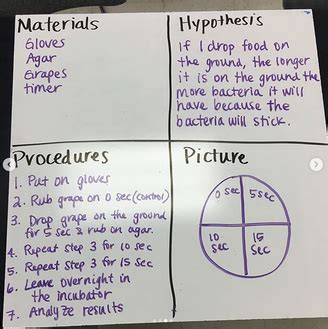 Materials
Gloves
Agar
Grapes
timer
Hypothesis
If I drop food on
the ground, the longer
it is on the ground the
more bacteria it will
have because the
bacteria will stick.
Procedures
1. Put on gloves
2. Rub grape on 0 sec (control)
3. Drop grape on the ground
for 5 sec & rub on agar.
4. Repeat step 3 for 10 sec
5. Repeat step 3 for 15 sec
6. Leave overnight in
the incubator
7. Analyze results
Picture
0 sec
5 sec
10
sec
15
sec